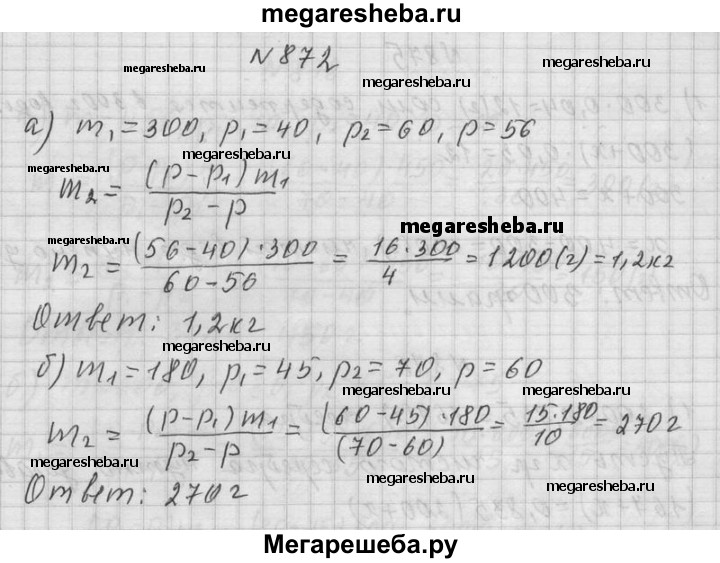 megaresheba.ru
№ 872
megaresheba.ru megaresheba.ru
а) m₁ = 300, p₁ = 40, p₂ = 60, p = 56
megaresheba.ru
m₂ = (p – p₁) m₁ / p₂ – p
megaresheba.ru
megaresheba.ru
m₂ = (56 – 40) · 300 / 60 – 56 = 16 · 300 / 4 = 1200 (г) = 1,2 кг
Ответ: 1,2 кг
megaresheba.ru
б) m₁ = 180, p₁ = 45, p₂ = 70, p = 60
megaresheba.ru megaresheba.ru
m₂ = (p – p₁) m₁ / p₂ – p = (60 – 45) · 180 / (70 – 60) = 15 · 180 / 10 = 270 г
megaresheba.ru
megaresheba.ru
Ответ: 270 г
Мегарешеба.ру